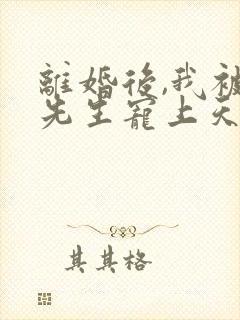 離婚後,我被
先生寵上天
其其格